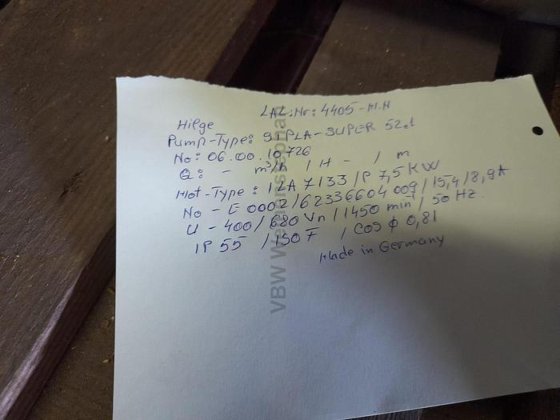 LAZ.Nr: 4405-M.H
Hilge
Pump-Type: SIPLA-SUPER 52.1
No: 06.00.10726
Q: - m³/h / H - / m
Mot-Type: 1LA7133 / P 7,5 KW
No - E 0002/62336604 009 / 15,4/8,9A
U - 400/680 Vn / 1450 min / 50 Hz.
IP 55 / 150 F / cos φ 0,81
Made in Germany
VBW